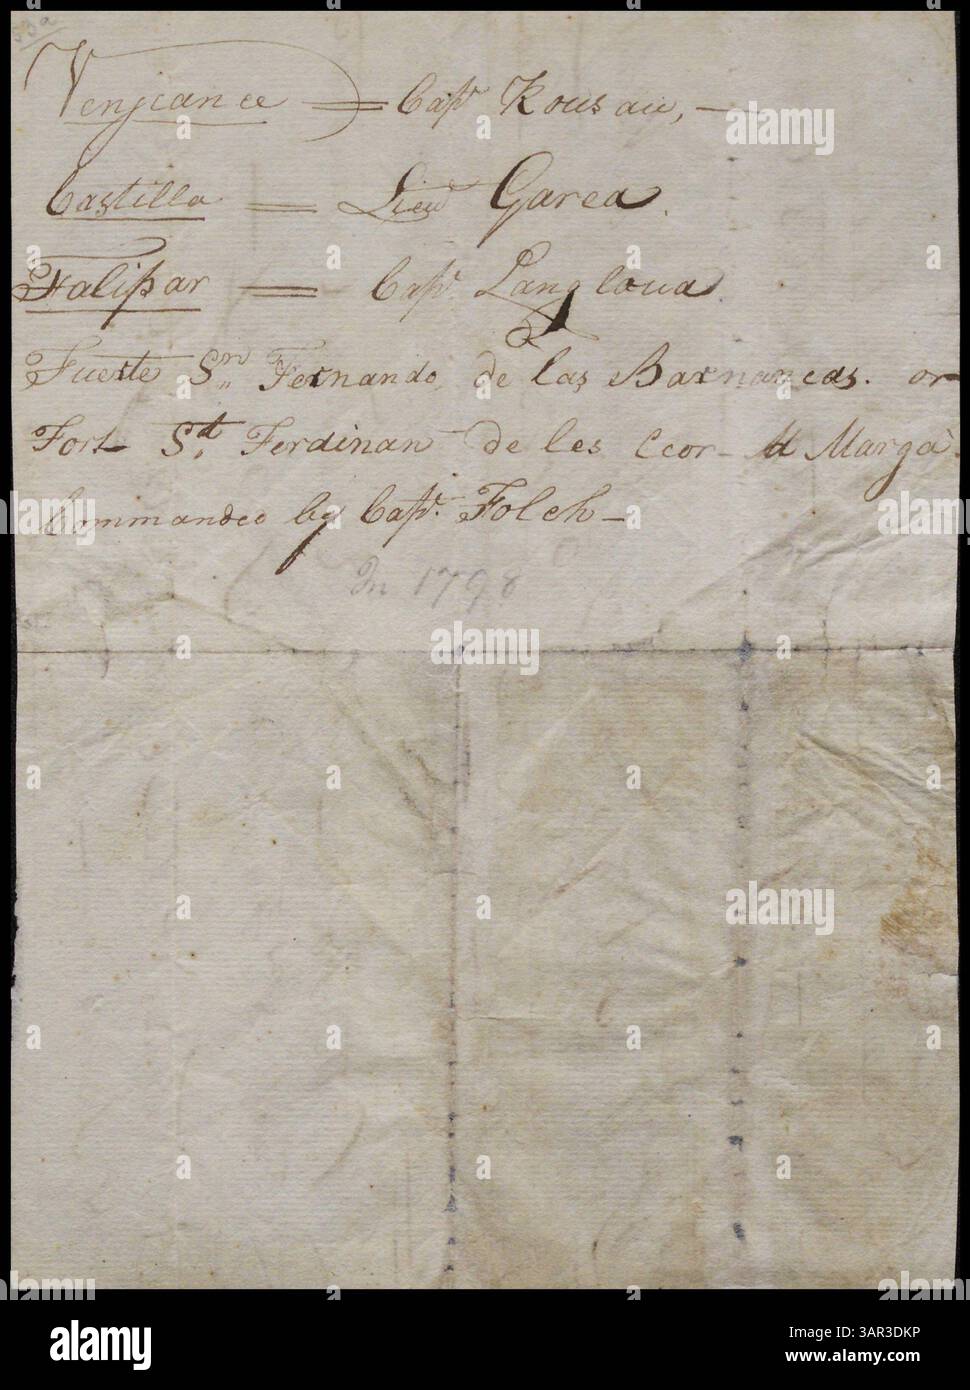 53a
Vengeance = Capt Rousau, —
Castilla = Lieu Garea.
Falipar = Capt. Langloua
Fuerte Sn,, Fernando, de las Barnancas. or
Fort St. Ferdinan de les Ccor - Marga
Commanded by Capt. Folch —
In 1798
alamy
Image ID: 3AR3DKP
www.alamy.com